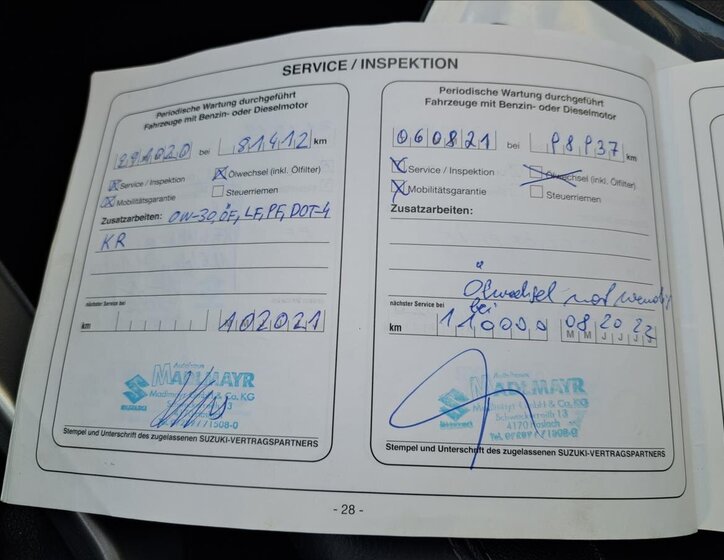 SERVICE / INSPEKTION
Periodische Wartung durchgeführt
Fahrzeuge mit Benzin- oder Dieselmotor
291020 bei 81412 km
Service / Inspektion
Ölwechsel (inkl. Ölfilter)
Mobilitätsgarantie
Steuerriemen
Zusatzarbeiten: 0W-30, ÖF, LF, PF, DOT-4
KR
nächster Service bei
km 102021
Autohaus
MADLMAYR
Madlmayr GmbH & Co. KG
SUZUKI
Stempel und Unterschrift des zugelassenen SUZUKI-VERTRAGSPARTNERS
Periodische Wartung durchgeführt
Fahrzeuge mit Benzin- oder Dieselmotor
060821 bei 98937 km
Service / Inspektion
Ölwechsel (inkl. Ölfilter)
Mobilitätsgarantie
Steuerriemen
Zusatzarbeiten:
Ölwechsel notwendig
bei
nächster Service bei
km 110000 08 20 22
M M J J J J
Autohaus
MADLMAYR
Madlmayr GmbH & Co. KG
4170 Haslach
Stempel und Unterschrift des zugelassenen SUZUKI-VERTRAGSPARTNERS
- 28 -